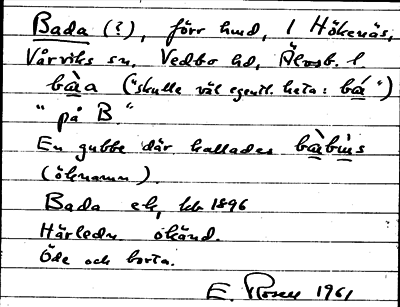 Bada (?), förr hmd, 1 Hökenäs,
Vårviks sn, Vedbo hd, Älvsb. l.
bà̱a ("skulle väl egentl. heta: bá̱")
"på B."
En gubbe där kallades bà̱bi̱ṉs
(öknamn).
Bada ek, 1896
Härledn okänd.
Öde och borta.
E. Rosell 1961